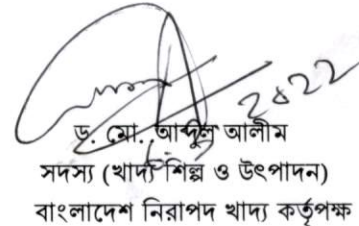 2022
ড. মো. আব্দুল আলীম
সদস্য (খাদ্য শিল্প ও উৎপাদন)
বাংলাদেশ নিরাপদ খাদ্য কর্তৃপক্ষ